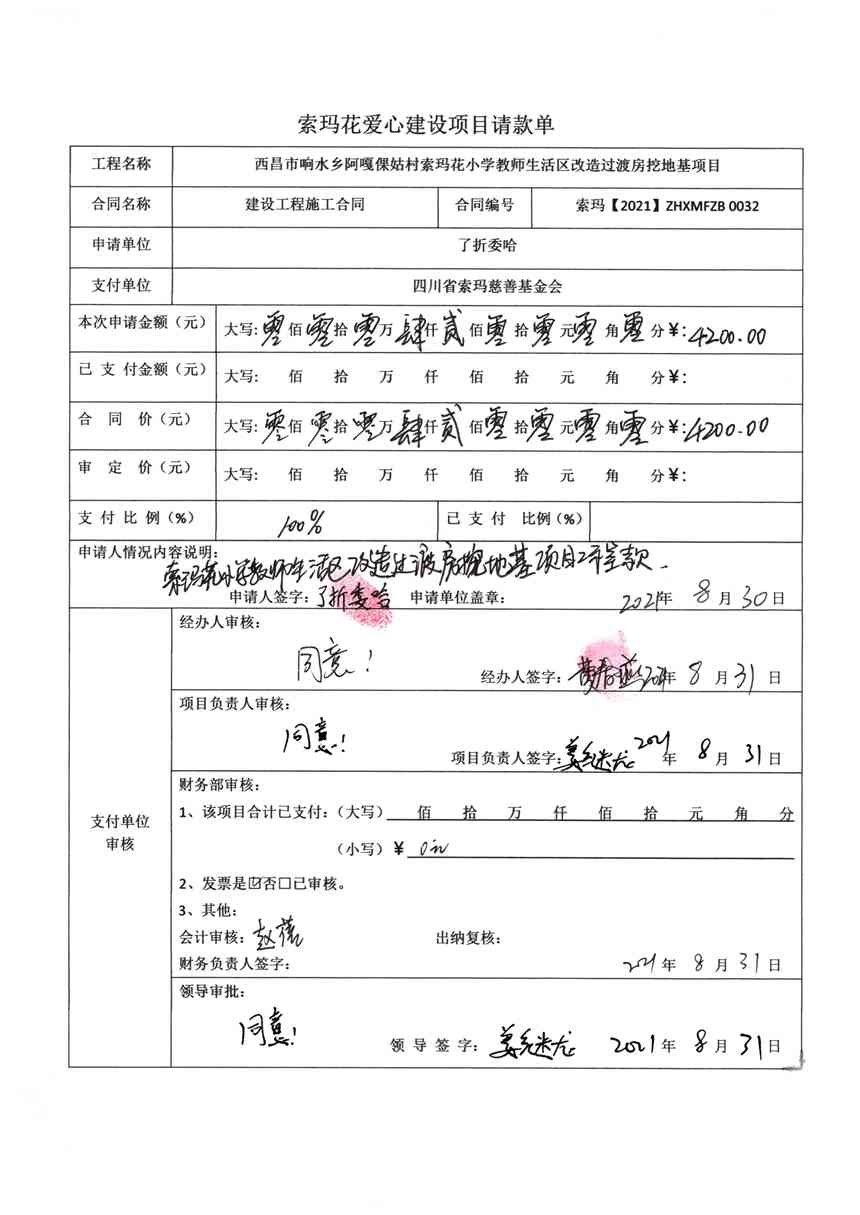 索玛花爱心建设项目请款单
工程名称 西昌市响水乡阿嘎倮姑村索玛花小学教师生活区改造过渡房挖地基项目
合同名称 建设工程施工合同 合同编号 索玛【2021】ZHXMFZB 0032
申请单位 了折委哈
支付单位 四川省索玛慈善基金会
本次申请金额（元） 大写: 零佰零拾零万肆仟贰佰零拾零元零角零分¥: 4200.00
已支付金额（元） 大写: 佰 拾 万 仟 佰 拾 元 角 分¥:
合同价（元） 大写: 零佰零拾零万肆仟贰佰零拾零元零角零分¥: 4200.00
审定价（元） 大写: 佰 拾 万 仟 佰 拾 元 角 分¥:
支付比例（%） 100% 已支付 比例（%）
申请人情况内容说明:
索玛花小学教师生活区改造过渡房挖地基项目工程款.
申请人签字: 了折委哈 申请单位盖章: 2021年 8月30日
支付单位审核
经办人审核:
同意！
经办人签字: 2021年 8月31日
项目负责人审核:
同意！
项目负责人签字: 2021年 8月31日
财务部审核:
1、该项目合计已支付:（大写） 佰 拾 万 仟 佰 拾 元 角 分
（小写）¥ 0元
2、发票是☑否☐已审核。
3、其他:
会计审核: 赵蓓 出纳复核:
财务负责人签字: 2021年 8月31日
领导审批:
同意！
领导签字: 2021年 8月31日